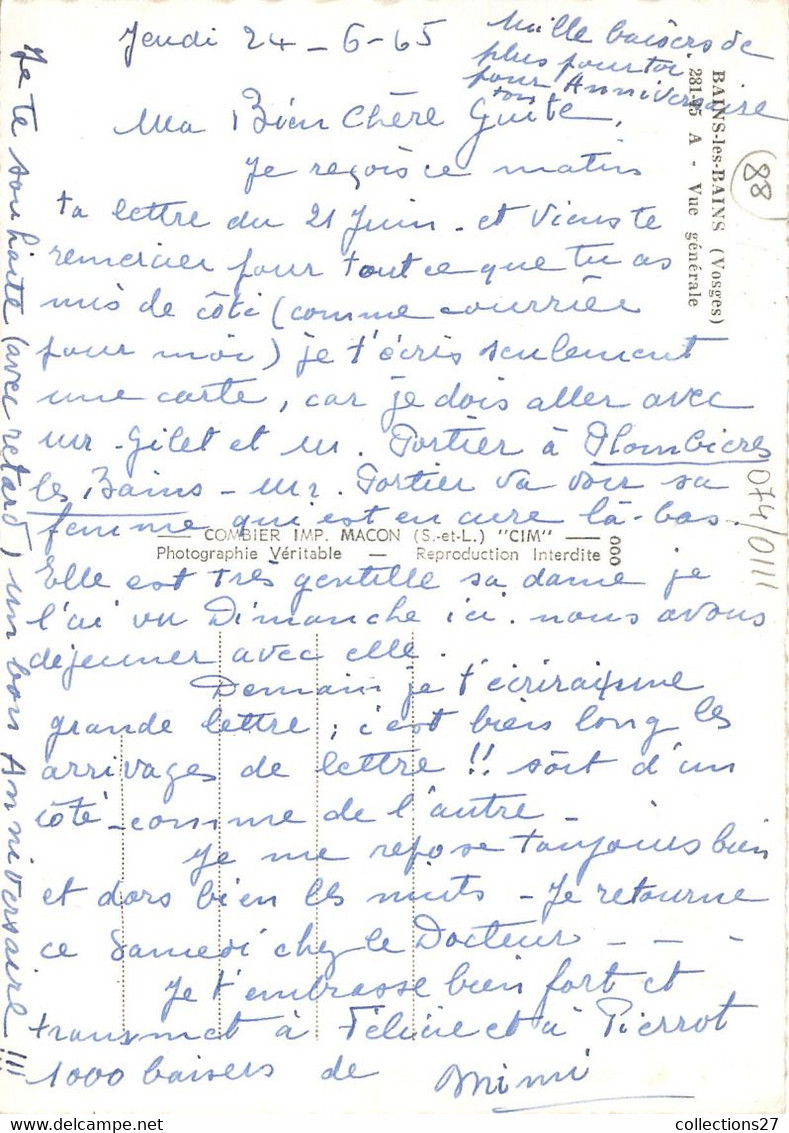 Jeudi 24-6-65
Mille baisers de
plus pour toi
pour ton Anniversaire
Ma Bien Chère Guite,
Je reçois ce matin
ta lettre du 21 Juin - et viens te
remercier pour tout ce que tu as
mis de côté (comme courrier
pour moi) je t'écris seulement
une carte, car je dois aller avec
Mr Gilet et M. Portier à Plombières
les Bains - Mr. Portier va voir sa
femme qui est en cure là-bas.
Elle est très gentille sa dame je
l'ai vu Dimanche ici. nous avons
déjeuner avec elle.
Demain je t'écrirai une
grande lettre ; c'est bien long les
arrivages de lettre !! soit d'un
côté - comme de l'autre -
Je me repose toujours bien
et dors bien les nuits - Je retourne
ce Samedi chez le Docteur - - -
Je t'embrasse bien fort et
transmet à Félicie et à Pierrot
1000 baisers de Mimi
Je te souhaite (avec retard) un bon Anniversaire !!!
BAINS-les-BAINS (Vosges)
281-95 A - Vue générale
88
074/0111
COMBIER IMP. MACON (S.-et-L.) "CIM"
Photographie Véritable — Reproduction Interdite
000
collections27